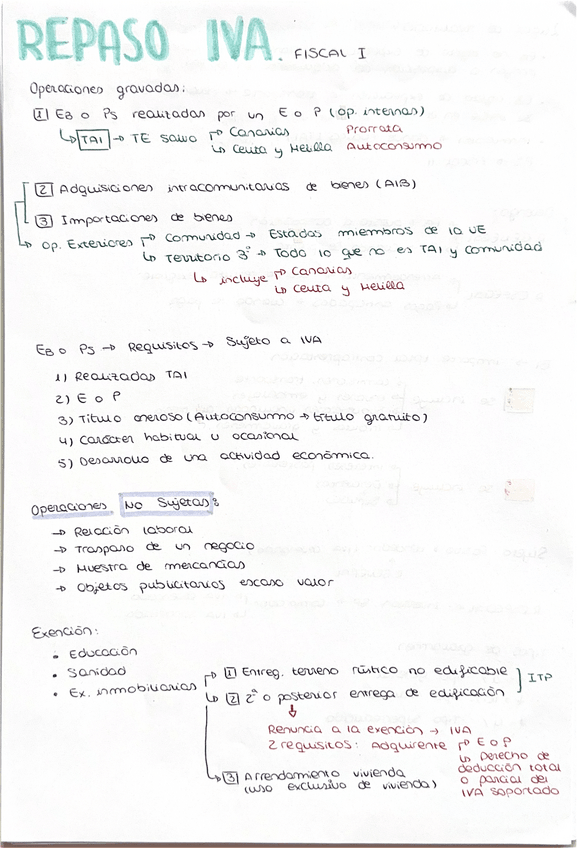 REPASO IVA. FISCAL I
Operaciones gravadas:
1 EB o PS realizadas por un E o P (op. internas)
TAI → TE salvo Canarias Prorrata
Ceuta y Melilla Autoconsumo
2 Adquisiciones intracomunitarias de bienes (AIB)
3 Importaciones de bienes
Op. Exteriores Comunidad → Estados miembros de la UE
Territorio 3º → Todo lo que no es TAI y comunidad
incluye Canarias
Ceuta y Melilla
EB o PS → Requisitos → Sujeto a IVA
1) Realizadas TAI
2) E o P
3) Título oneroso (Autoconsumo → título gratuito)
4) Carácter habitual u ocasional
5) Desarrollo de una actividad económica.
Operaciones No Sujetas:
→ Relación laboral
→ Traspaso de un negocio
→ Muestra de mercancías
→ Objetos publicitarios escaso valor
Exención:
• Educación
• Sanidad
• Ex. inmobiliarias
1 Entreg. terreno rústico no edificable
2 2ª o posterior entrega de edificación
ITP
Renuncia a la exención → IVA
2 requisitos: Adquirente E o P
Derecho de
deducción total
o parcial del
IVA soportado
3 Arrendamiento vivienda
(uso exclusivo de vivienda)